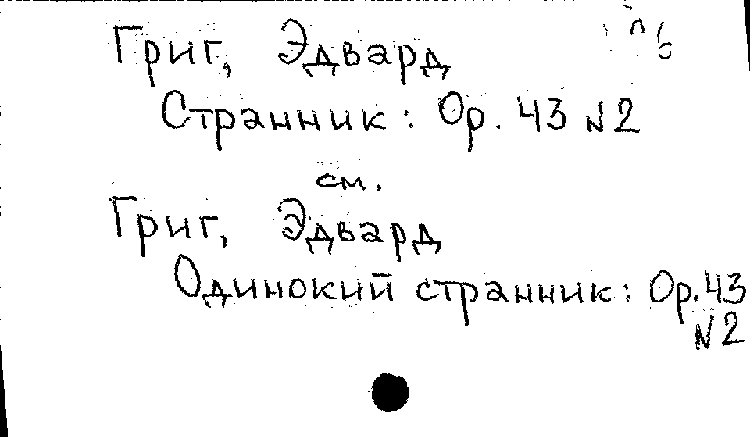 Григ, Эдвард
Странник: Ор. 43 N2
см.
Григ, Эдвард
Одинокий странник: Ор. 43
N2